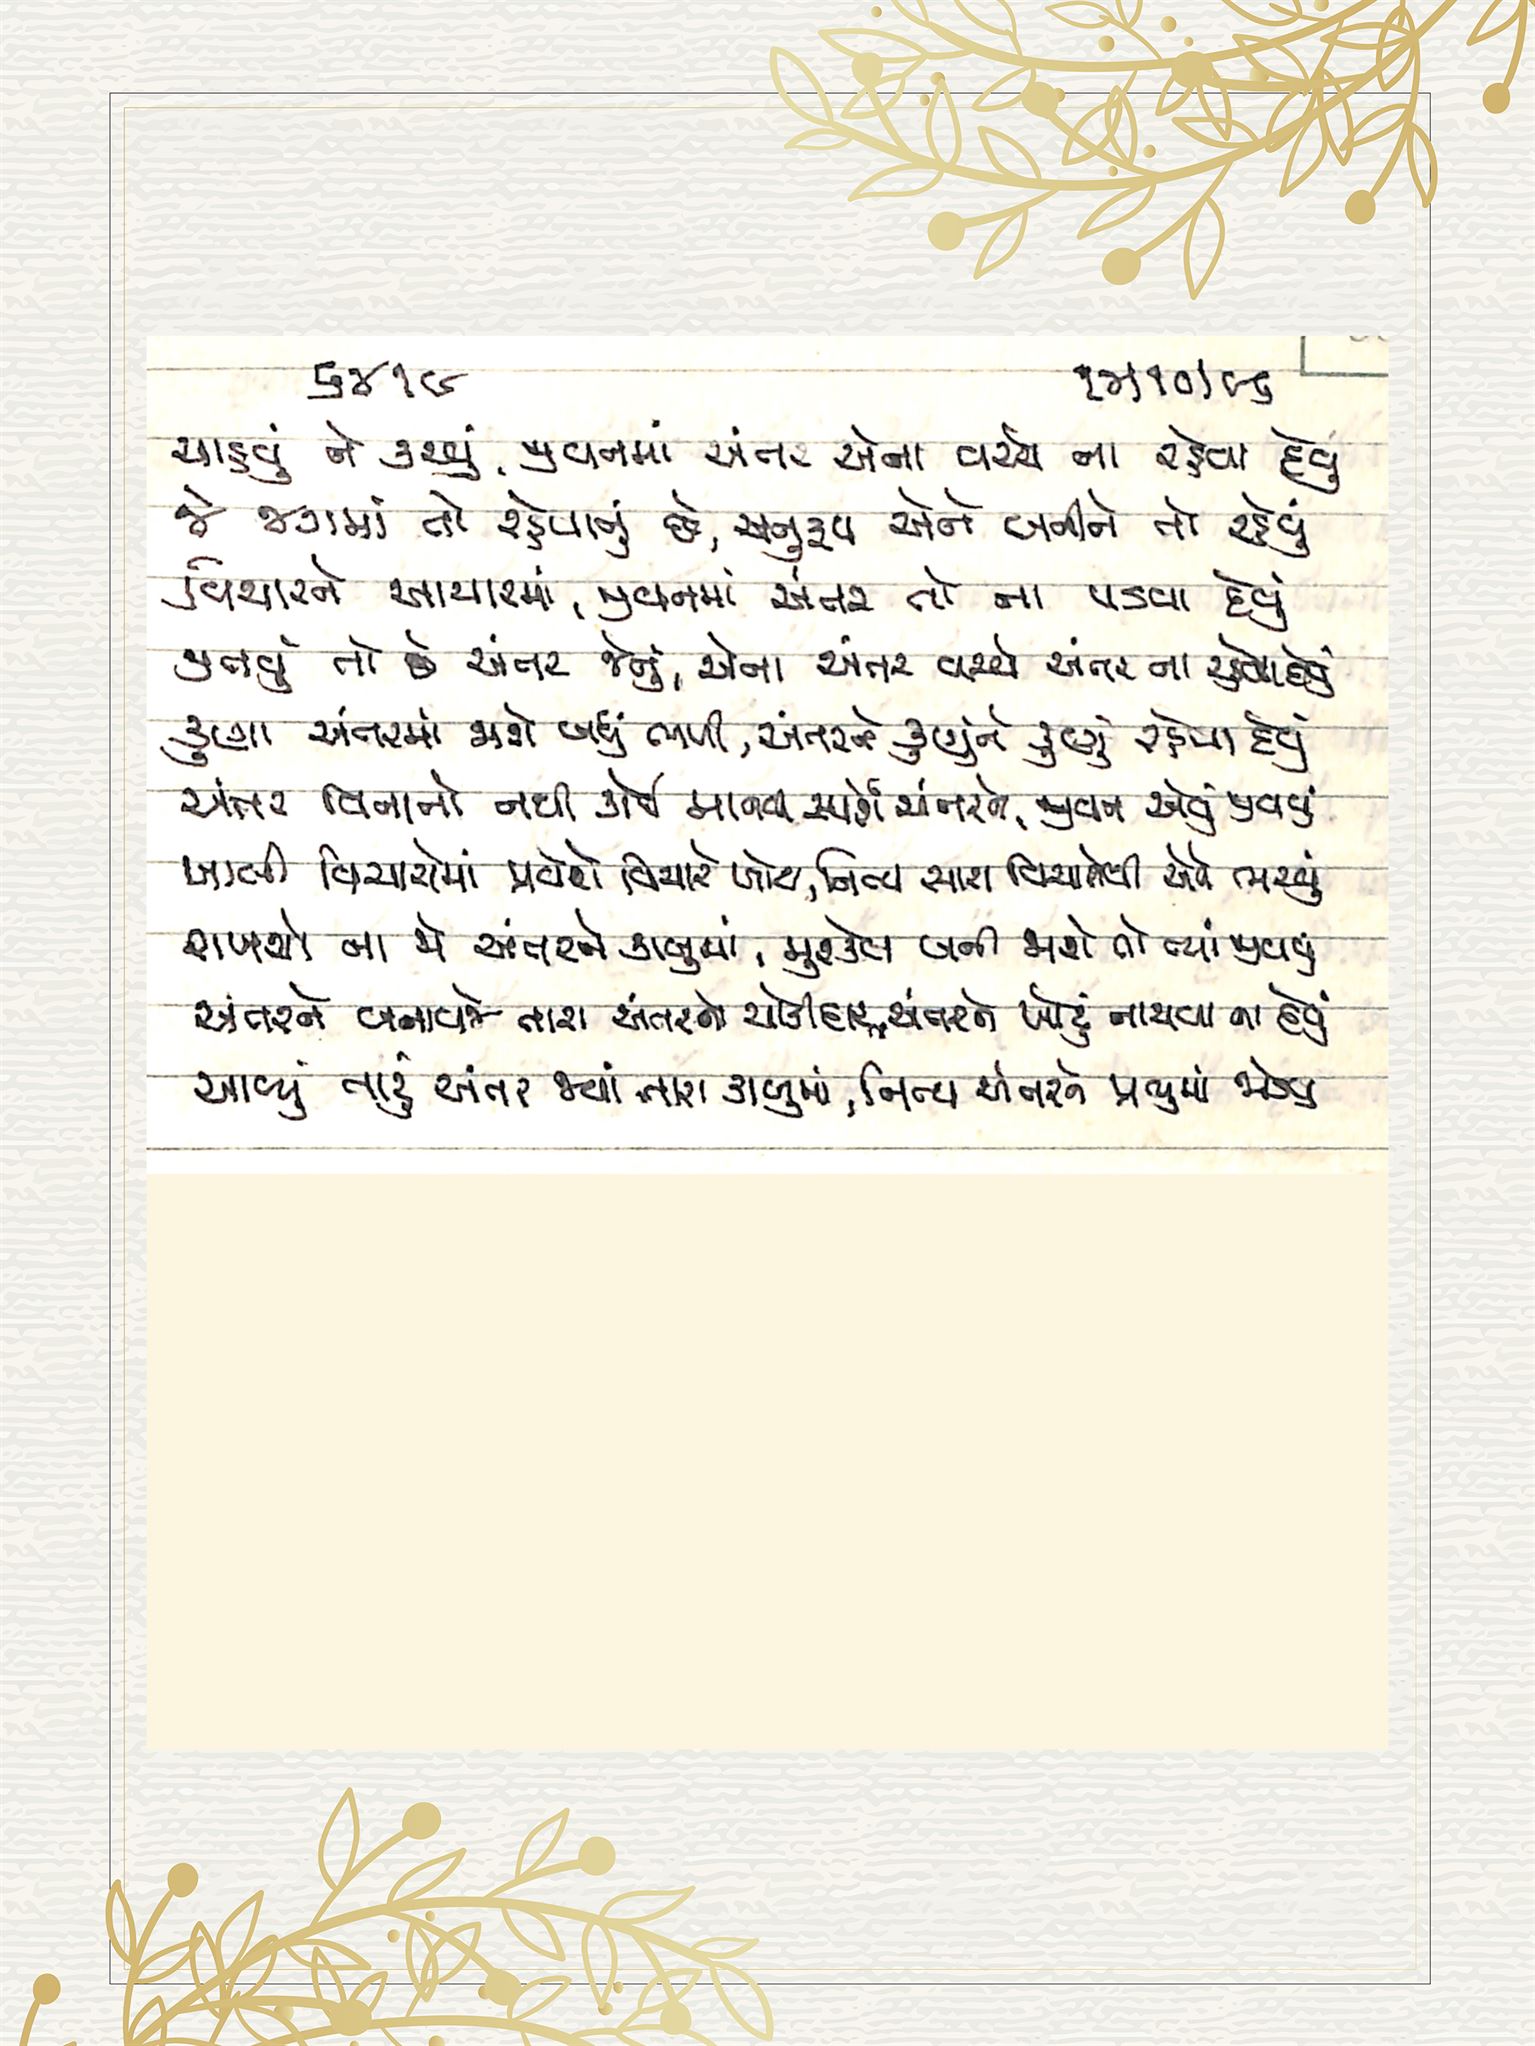 ૬૪૧૯ ૧૨/૧૦/૯૬
ચાહવું ને કરવું, જીવનમાં અંતર એના વચ્ચે ના રહેવા દેવું
જે જગમાં તો રહેવાનું છે, અનુરૂપ એને બનીને તો રહેવું
વિચારને આચારમાં, જીવનમાં અંતર તો ના પડવા દેવું
જીતવું તો છે અંતર જેનું, એના અંતર વચ્ચે અંતર ના રહેવા દેવું
કુણા અંતરમાં જાશે બધું ભળી, અંતરને કુણું ને કુણું રહેવા દેવું
અંતર વિનાનો નથી કોઈ માનવ, સ્પર્શે અંતરને, જીવન એવું જીવવું
ખાલી વિચારોમાં પ્રવેશે વિચારો ખોટા, નિત્ય સારા વિચારોથી એને ભરવું
રાખશો ના જો અંતરને કાબૂમાં, મુશ્કેલ બની જાશે તો ત્યાં જીવવું
અંતરને બનાવજે તારા અંતરનો ચોકીદાર, અંતરને ખોટું નાચવા ના દેવું
આવ્યું તારું અંતર જ્યાં તારા કાબુમાં, નિત્ય અંતરને પ્રભુમાં જોડવું